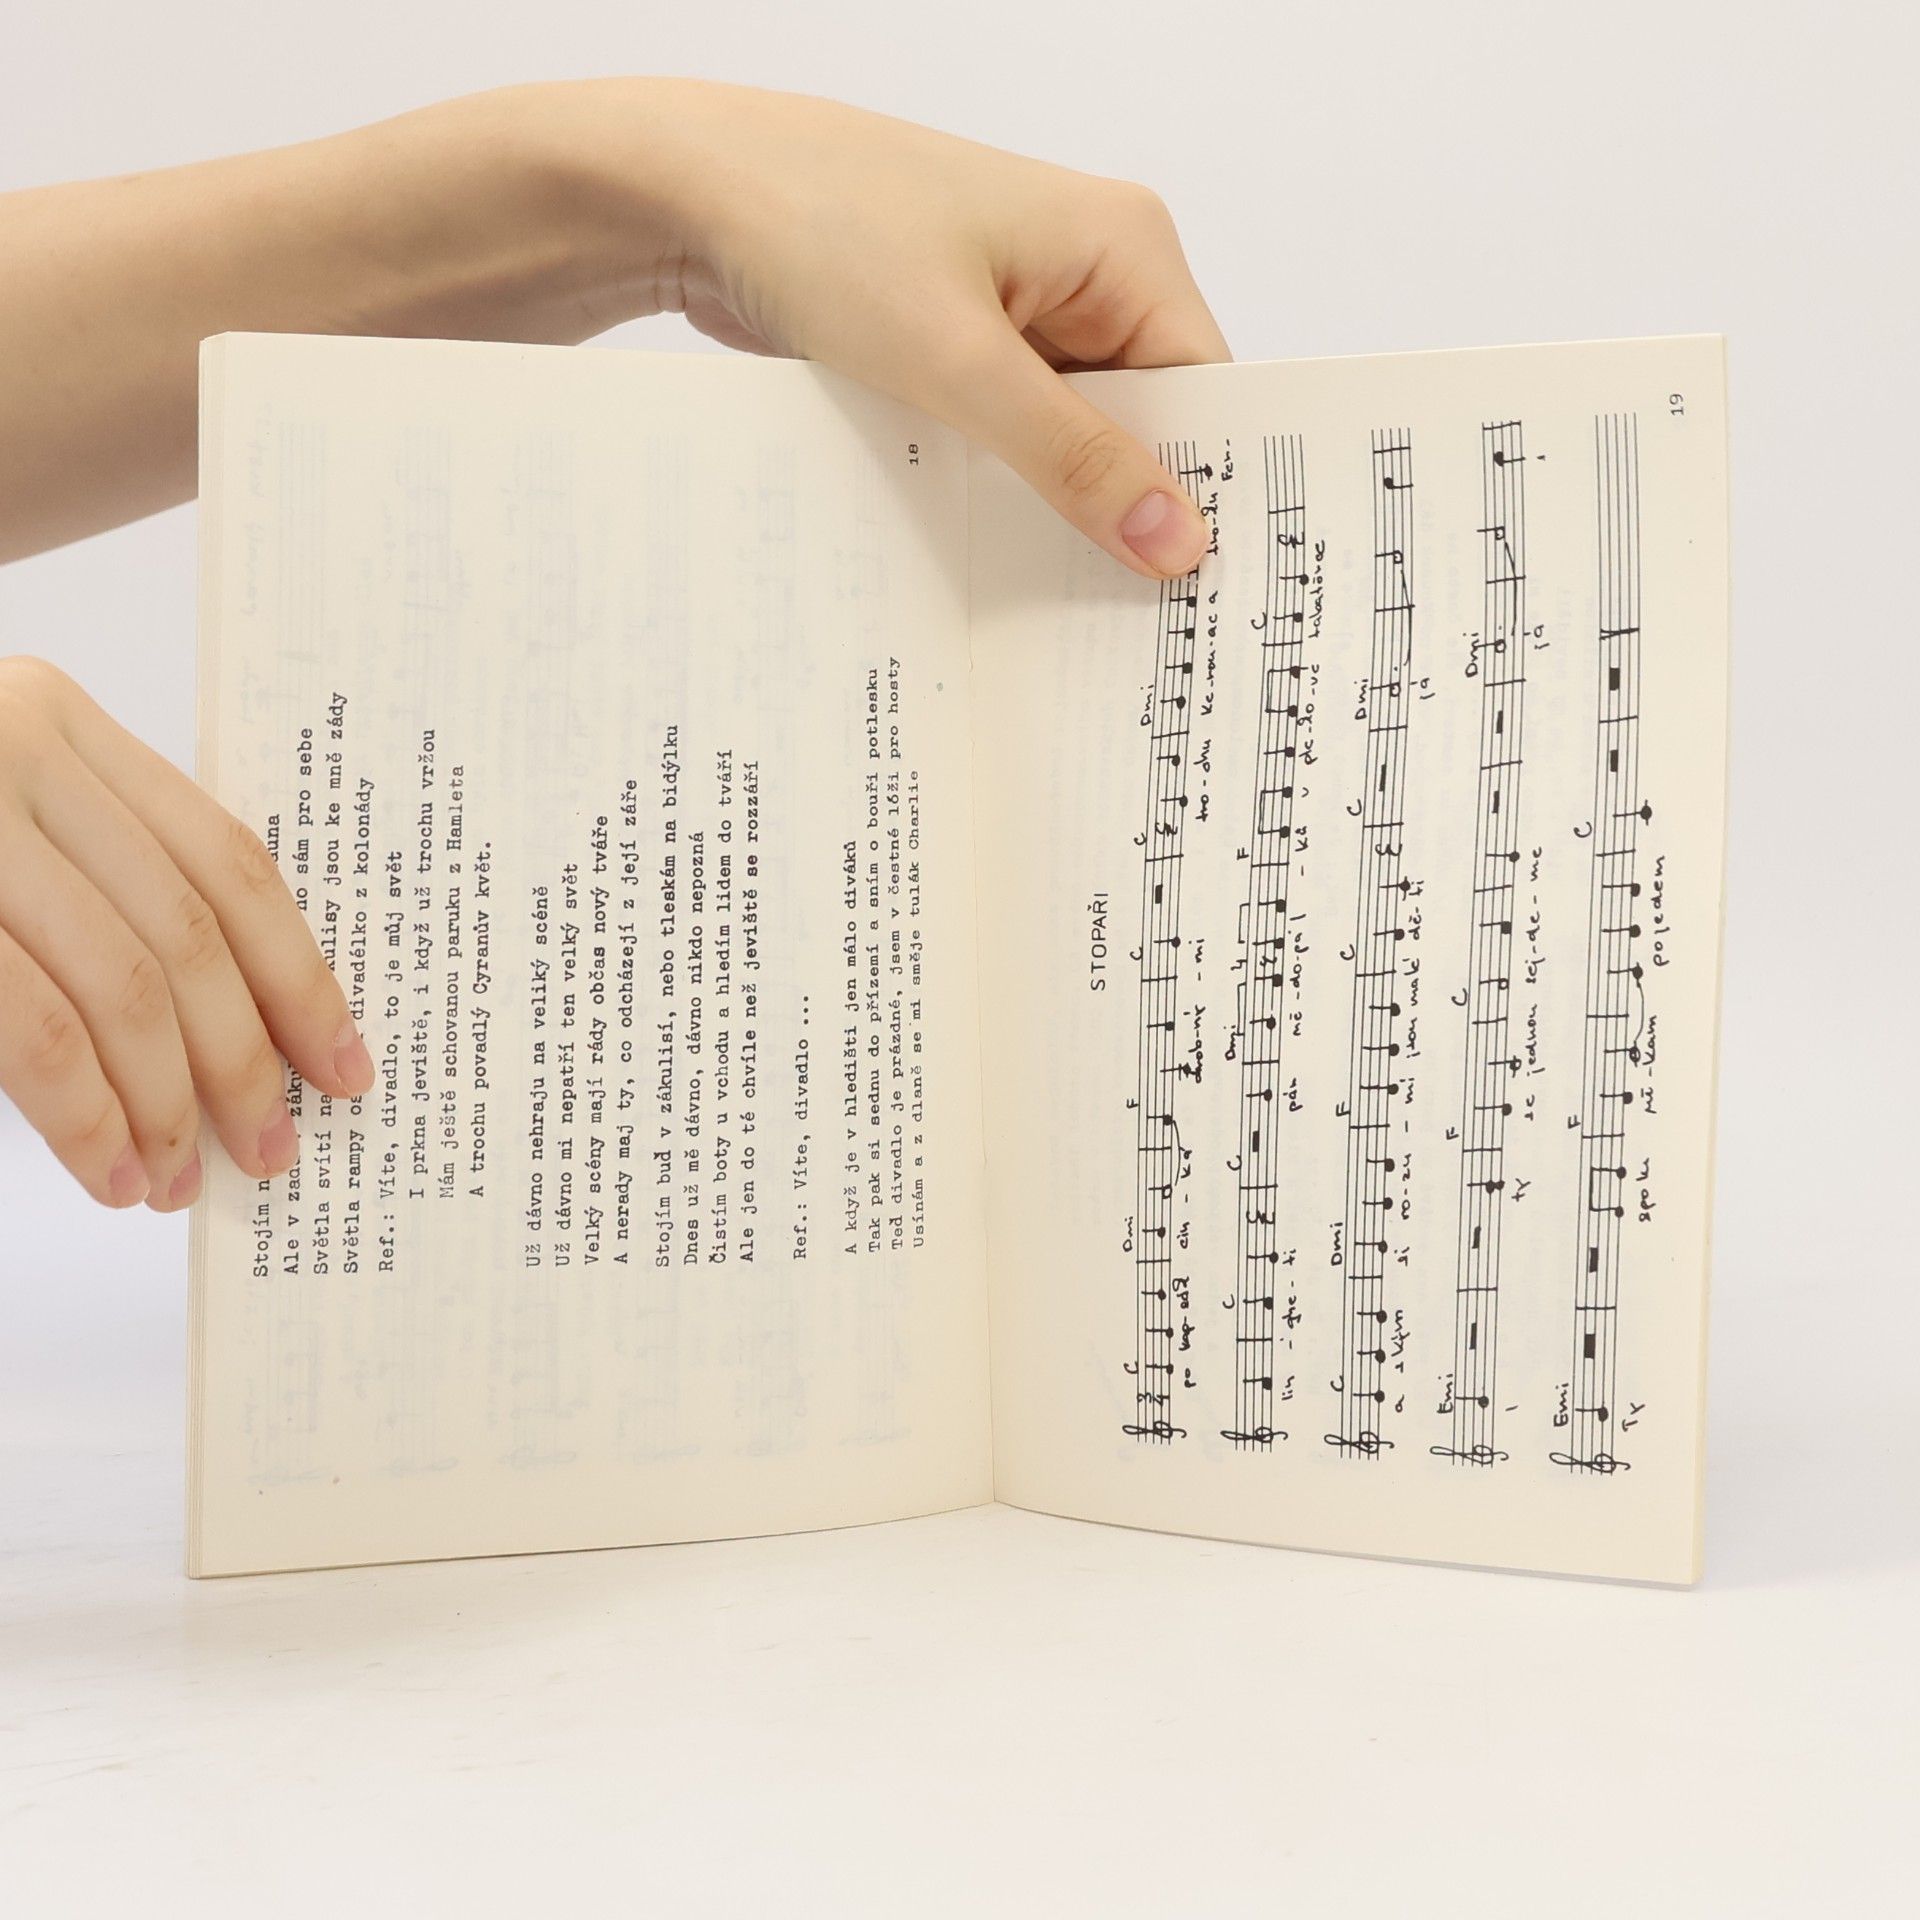 Stojím
Ale v
Světla svítí kulisy jsou ke mně zády
Světla rampy divadélko z kolonády
Ref.: Víte, divadlo, to je můj svět
I prkna jeviště, i když už trochu vržou
Mám ještě schovanou paruku z Hamleta
A trochu povadlý Cyranův květ.
Už dávno nehraju na veliký scéně
Už dávno mi nepatří ten velký svět
Velký scény mají rády občas nový tváře
A nerady maj ty, co odcházejí z její záře
Stojím buď v zákulisí, nebo tleskám na bidýlku
Dnes už mě dávno, dávno nikdo nepozná
Čistím boty u vchodu a hledím lidem do tváří
Ale jen do té chvíle než jeviště se rozzáří
Ref.: Víte, divadlo ...
A když je v hledišti jen málo diváků
Tak pak si sednu do přízemí a sním o bouři potlesku
Teď divadlo je prázdné, jsem v čestné lóži pro hosty
Usínám a z dlaně se mi směje tulák Charlie
18
STOPAŘI
C Dmi F C C Dmi
po kap-sách cin - ká drob-ný - mi tro - chu Ke-rou-ac a Fer-
C C Dmi F C
lin - ghe - ti pán mě-do-pá l - ká v
C Dmi F C C Dmi
a s kým si ro-zu - mi jsou malé dě-ti já
Emi F C Dmi
i ty se jednou sej-de-me já
Emi F C
Ty spolu ně-kam pojedem
19